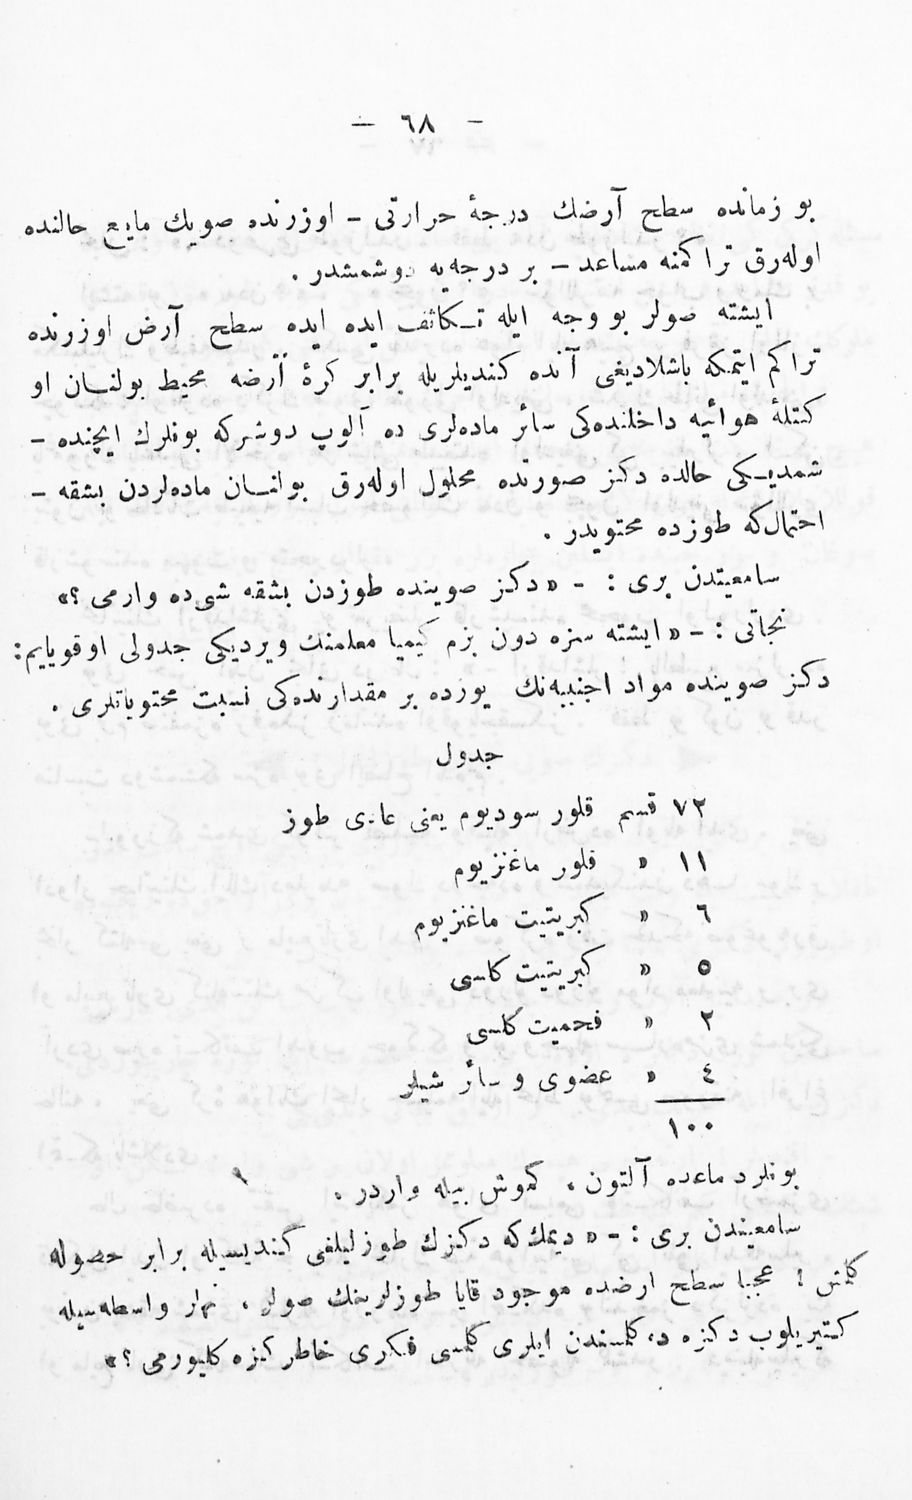 — ٦٨ —
بو زمانده سطح آرضك درجهٔ حرارتی – اوزرنده صويك مايع حالنده
اوله‌رق تراكمنه مساعد – بر درجه‌يه دوشمشدر .
ايشته صولر بو وجه ايله تكاثف ايده ايده سطح آرض اوزرنده
تراكم ايتمكه باشلاديغی آنده كنديلريله برابر كرهٔ آرضه محيط بولنان او
كتلهٔ هوائيه داخلنده‌كی سائر ماده‌لری ده آلوب دوشركه بونلرك ايچنده –
شمديكی حالده دكز صورنده محلول اوله‌رق بولنان ماده‌لردن بشقه –
احتمال‌كه طوزده محتويدر .
سامعيندن بری : – « دكز صوينده طوزدن بشقه شی‌ده وارمی ؟»
نجاتی : – « ايشته سزه دون بزم كيميا معلمنك ويرديكی جدولی اوقويايم :
دكز صوينده مواد اجنبيه‌نك يوزده بر مقدارنده‌كی نسبت محتوياتلری .
جدول
٧٢ قسم قلور سوديوم يعنی عادی طوز
١١ » قلور ماغنزيوم
٦ » كبريتيت ماغنزيوم
٥ » كبريتيت كلسی
٢ » فحميت كلسی
٤ » عضوی و سائر شيلر
١٠٠
بونلردماعده آلتون ، كموش بيله واردر .
سامعيندن بری : – « ديمك‌كه دكزك طوزليلغی كنديسيله برابر حصوله
كلمش ! عجبا سطح ارضده موجود قايا طوزلرينك صولر ، نهرلر واسطه‌سيله
كتيريلوب دكزه دكلسندن ايلری كلمسی فكری خاطركزه كليورمی ؟»